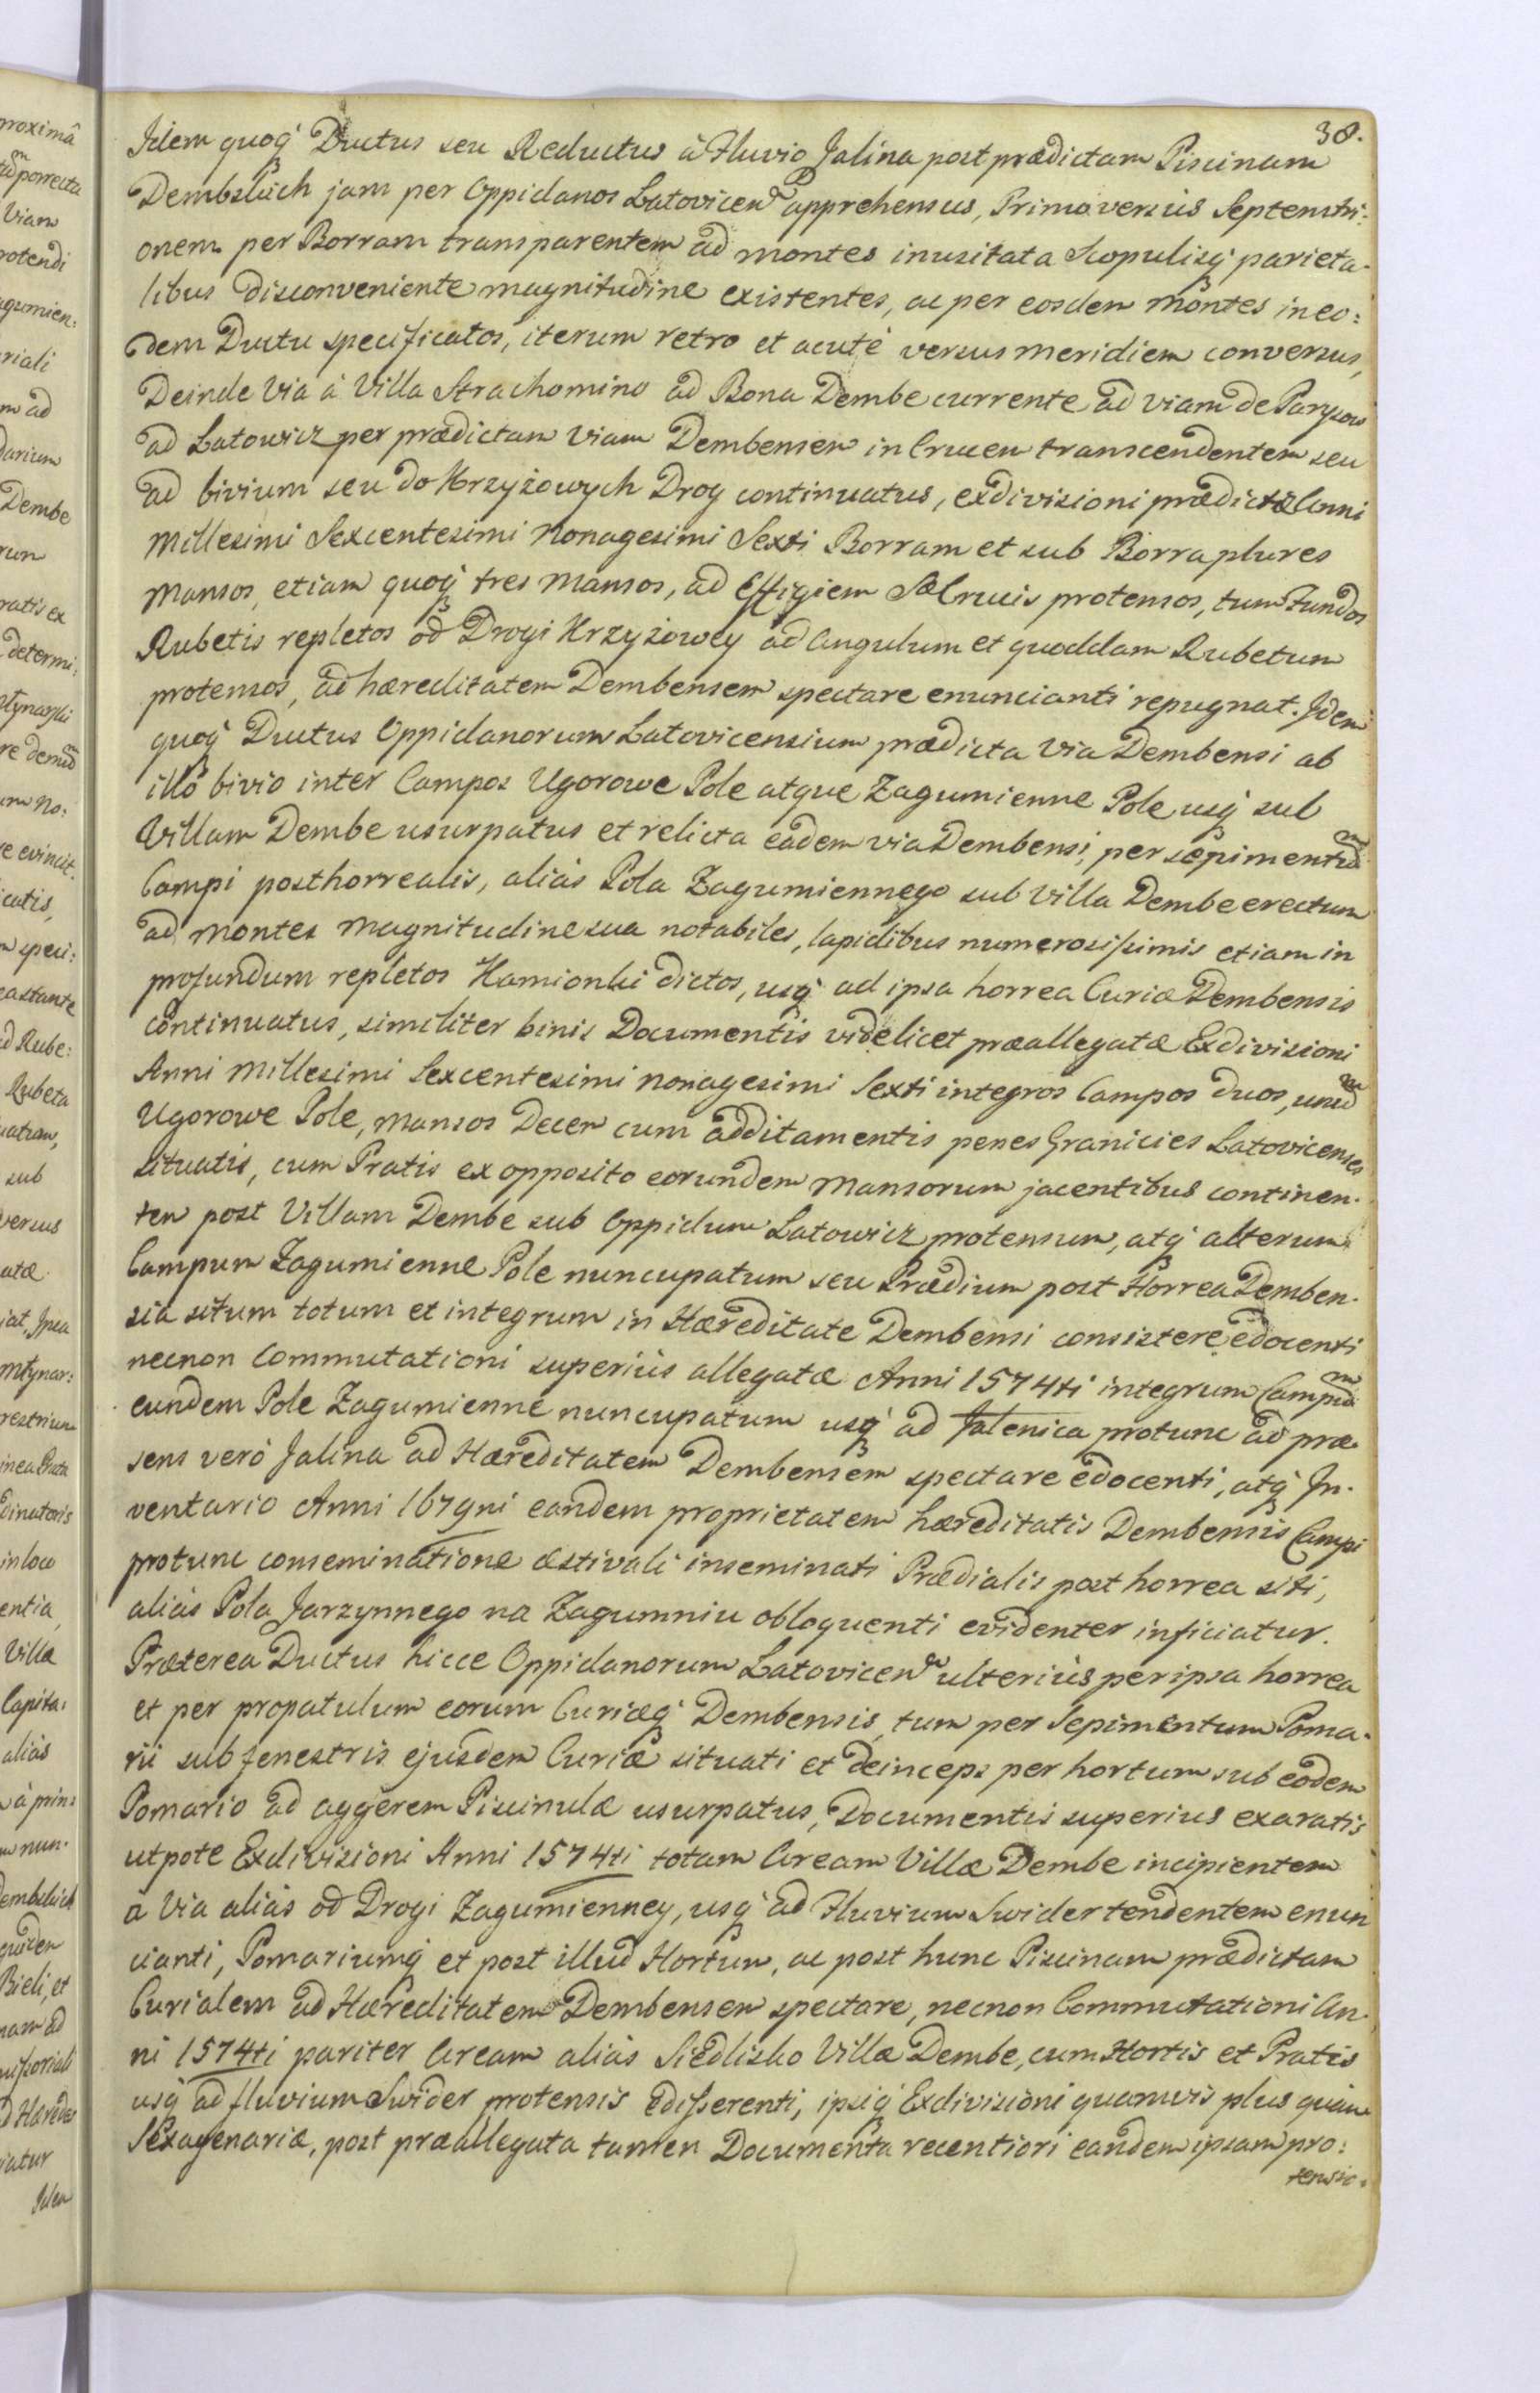 38.
Idem quoq́ Ductus seu Reductus à Fluvio Jalina post prædictam Piscinam
Dembsluch jam per Oppidanos Latovicen apprehensus, Primo versùs Septemtri:
onem per Borram transparentem ad montes inusitata Scopulisq́ parieta-
libus disconveniente magnitudine existentes, ac per eosdem Montes in eo:
dem Ductu specificatos, iterum retro et acutè versus meridiem conversus,
Deinde Via à Villa Strachomino ad Bona Dembe currente ad viam de Parysow
ad Latowicz per prædictam Viam Dembensem in Crucem transcendentem seu
ad bivium seu do Krzyżowych Drog continuatus, exdivisioni prædictæ Anni
Millesimi Sexcentesimi Nonagesimi Sexti Borram et sub Borra plures
Mansos, etiam quoq́ tres Mansos, ad Effigiem Sæ Crucis protensos, tum Fundos
Rubetis repletos od Drogi Krzyżowey ad Angulum et quoddam Rubetum
protensos, ad hæreditatem Dembensem spectare enuncianti repugnat. Idem
quoq́ Ductus Oppidanorum Latovicensium prædicta Via Dembensi ab
illo bivio inter Campos Ugorowe Pole atque Zagumienne Pole usq́ sub
Villam Dembe usurpatus et relicta eadem via Dembensi, per sæpimentũ
Campi posthorrealis, aliàs Pola Zagumiennego sub Villa Dembe erectum
ad montes magnitudine sua notabiles, lapidibus numerosissimis etiam in
profundum repletos Kamionki dictos, usq́ ad ipsa horrea Curiæ Dembensis
continuatus, similiter binis Documentis videlicet præallegatæ Exdivisioni
Anni Millesimi Sexcentesimi nonagesimi Sexti integros Campos duos, unũ
Ugorowe Pole, Mansos Decem cum additamentis penes Granicies Latovicenses
situatis, cum Pratis ex opposito eorundem Mansorum jacentibus continen-
tem post Villam Dembe sub Oppidum Latowicz protensum, atq́ alterum
Campum Zagumienne Pole nuncupatum seu Prædium post Horrea Demben-
sia situm totum et integrum in Hæreditate Dembensi consistere edocenti
necnon Commutationi superiùs allegatæ Anni 1574ti integrum Campũ
eundem Pole Zagumienne nuncupatum usq́ ad Jalenica protunc ad præ-
sens verò Jalina ad Hæreditatem Dembensem spectare edocenti, atq́ In-
ventario Anni 1679ni eandem proprietatem hæreditatis Dembensis Campi
protunc conseminatione æstivali inseminati Prædialis post horrea siti,
aliàs Pola Jarzynnego na Zagumniu obloquenti evidenter inficiatur.
Præterea Ductus hicce Oppidanorum Latovicen ulteriùs per ipsa horrea
et per propatulum eorum Curiæq́ Dembensis, tum per Sepimentum Poma-
rii sub fenestris ejusdem Curiæ situati et deinceps per hortum sub eodem
Pomario ad aggerem Piscinulæ usurpatus, Documentis superius exaratis
utpote Exdivisioni Anni 1574ti totam Aream Villæ Dembe incipientem
a Via aliàs od Drogi Zagumienney, usq́ ad Fluvium Swider tendentem enun
cianti, Pomariumq́ et post illud Hortum, ac post hunc Piscinam prædictam
Curialem ad Hæreditatem Dembensem spectare, necnon Commutationi An-
ni 1574ti pariter Aream aliàs Siedlisko Villæ Dembe, cum Hortis et Pratis
usq́ ad fluvium Swider protensis edisserenti, ipsiq́ Exdivisioni quamvis plus quàm
Sexagenariæ, post præallegata tamen Documenta recentiori eandem ipsam pro:
tensio-
proximâ
porrecta
Viam
rotendi
riali
m ad
Dembe
ratis ex
determi:
um No:
re evincit.
d Rube:
Rubeta
sub
versus
atæ
in loco
entia,
Villæ
Capita:
aliàs
à prin:
nun-
Bieli, et
nam ad
Idem